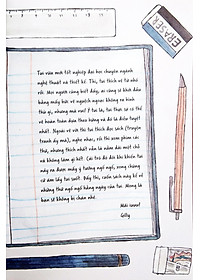 ERASER
Tui vừa mới tốt nghiệp đại học chuyên ngành
nghệ thuật và thiết kế. Thì, tui thích vẽ từ nhỏ
rồi. Mọi người cũng biết đấy, ai cũng sẽ khởi đầu
bằng mấy bức vẽ nguệch ngoạc không ra hình
thù gì, nhưng mà vui! Ý tui là, tui thực sự có thể
vẽ hoàn toàn dựa theo hứng và đó là điều tuyệt
nhất. Ngoài vẽ vời thì tui thích đọc sách (truyện
tranh ấy mà), nghe nhạc, rồi thì xem phim các
thứ, nhưng thích nhất vẫn là nằm dài một chỗ
và không làm gì hết. Cái trò đó đôi khi khiến tui
nảy ra được mấy ý tưởng ngộ ngộ, xong chúng
cứ ám lấy tui suốt. Đấy thì, cuốn sách này kể về
những thứ ngộ ngộ hằng ngày của tui. Mong là
bạn sẽ không bị chán nhé.
Mãi iuuuu!